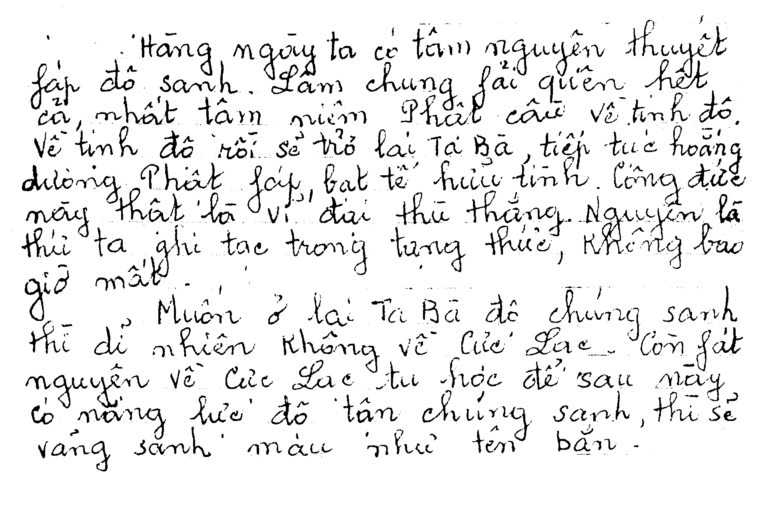 Hằng ngày ta có tâm nguyện thuyết
fáp độ sanh. Lâm chung fải quên hết
cả, nhất tâm niệm Phật cầu về tịnh độ.
Về tịnh độ rồi sẽ trở lại Ta Bà, tiếp tục hoằng
dương Phật fáp, bạt tế hữu tình. Công đức
này thật là vĩ đại thù thắng. Nguyện là
thứ ta ghi tạc trong tạng thức, không bao
giờ mất.
Muốn ở lại Ta Bà độ chúng sanh
thì dĩ nhiên không về Cực Lạc. Còn fát
nguyện về Cực Lạc tu học để sau này
có năng lực độ tận chúng sanh, thì sẽ
vãng sanh mau như tên bắn.